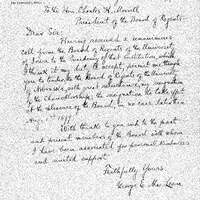 To the Hon. Charles H. Morrill
President of the Board of Regents
Dear Sir:
Having received a unanimous
call from the Board of Regents of the University
of Iowa to the Presidency of that institution, and
I think it my duty to accept, permit me through
you to tender to the Board of Regents of the University
of Nebraska, with great reluctance, my resignation
of the Chancellorship; the resignation to take effect
at the pleasure of the Board, in no case later than
Aug. 1, 1899.
With thanks to you and to the past
and present members of the Board with whom
I have been associated for personal kindness
and united support.
Faithfully Yours,
George E. MacLean